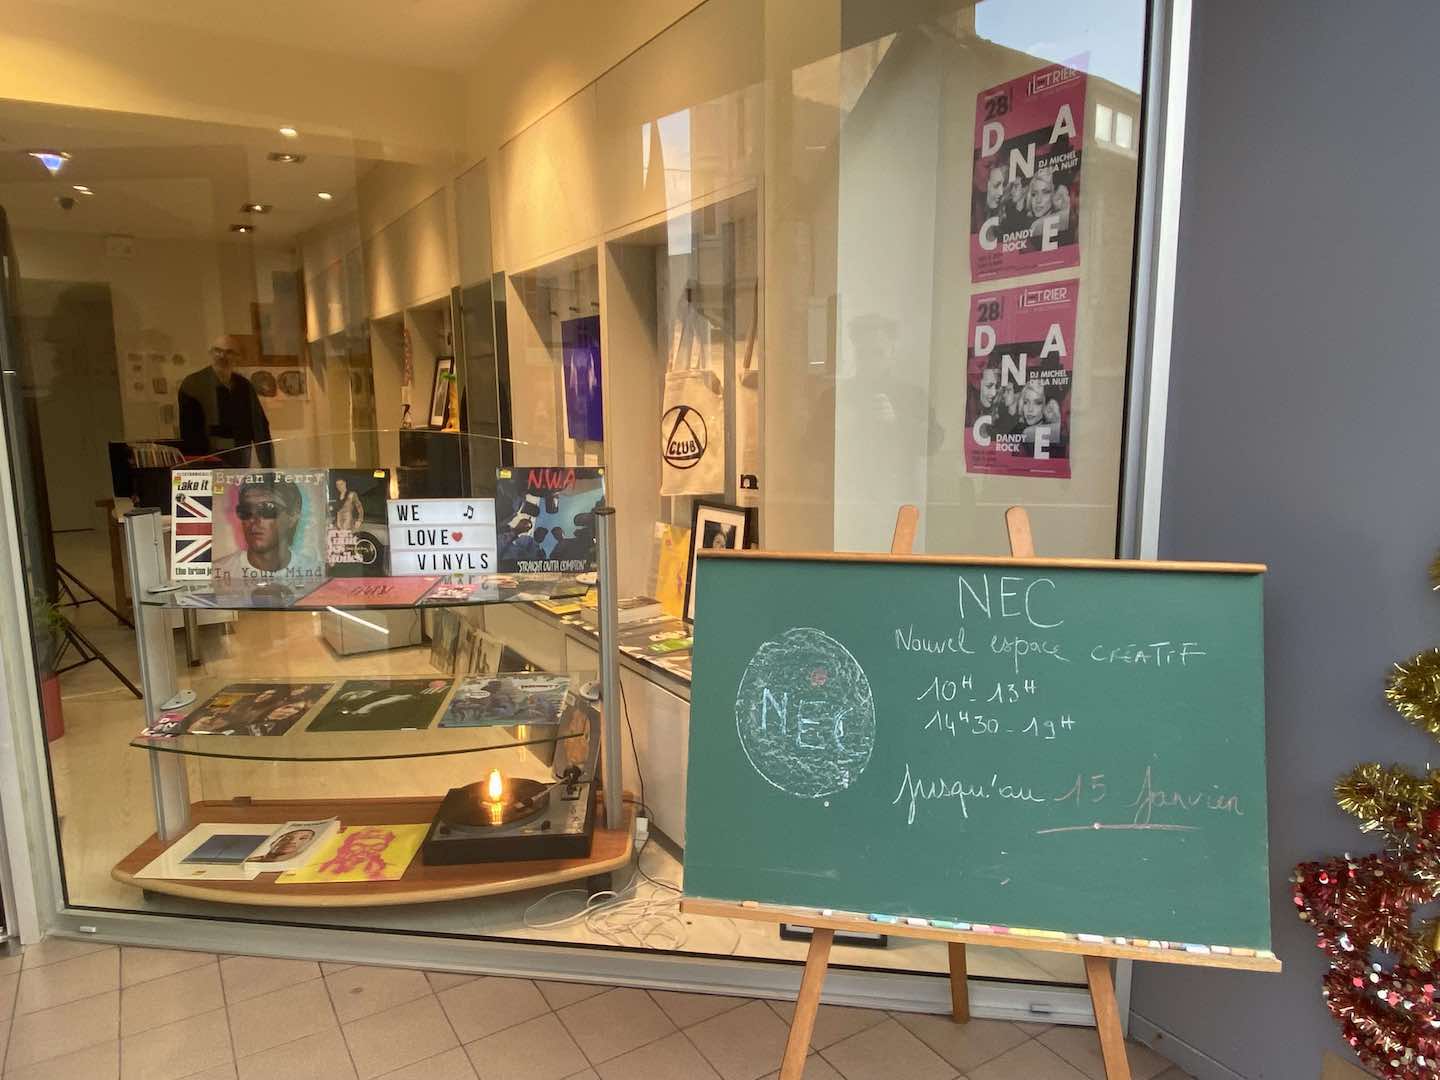 take it
the brian jo
Bryan Ferry
In Your Mind
WE
LOVE
VINYLS
N.W.A
"STRAIGHT OUTTA COMPTON"
CLUB
28
L'ETRIER
DANCE
DJ MICHEL
DE LA NUIT
DANDY
ROCK
28
L'ETRIER
DANCE
DJ MICHEL
DE LA NUIT
DANDY
ROCK
NEC
Nouvel espace CRÉATIF
10H-13H
14H30-19H
Jusqu'au 15 janvier
NEC